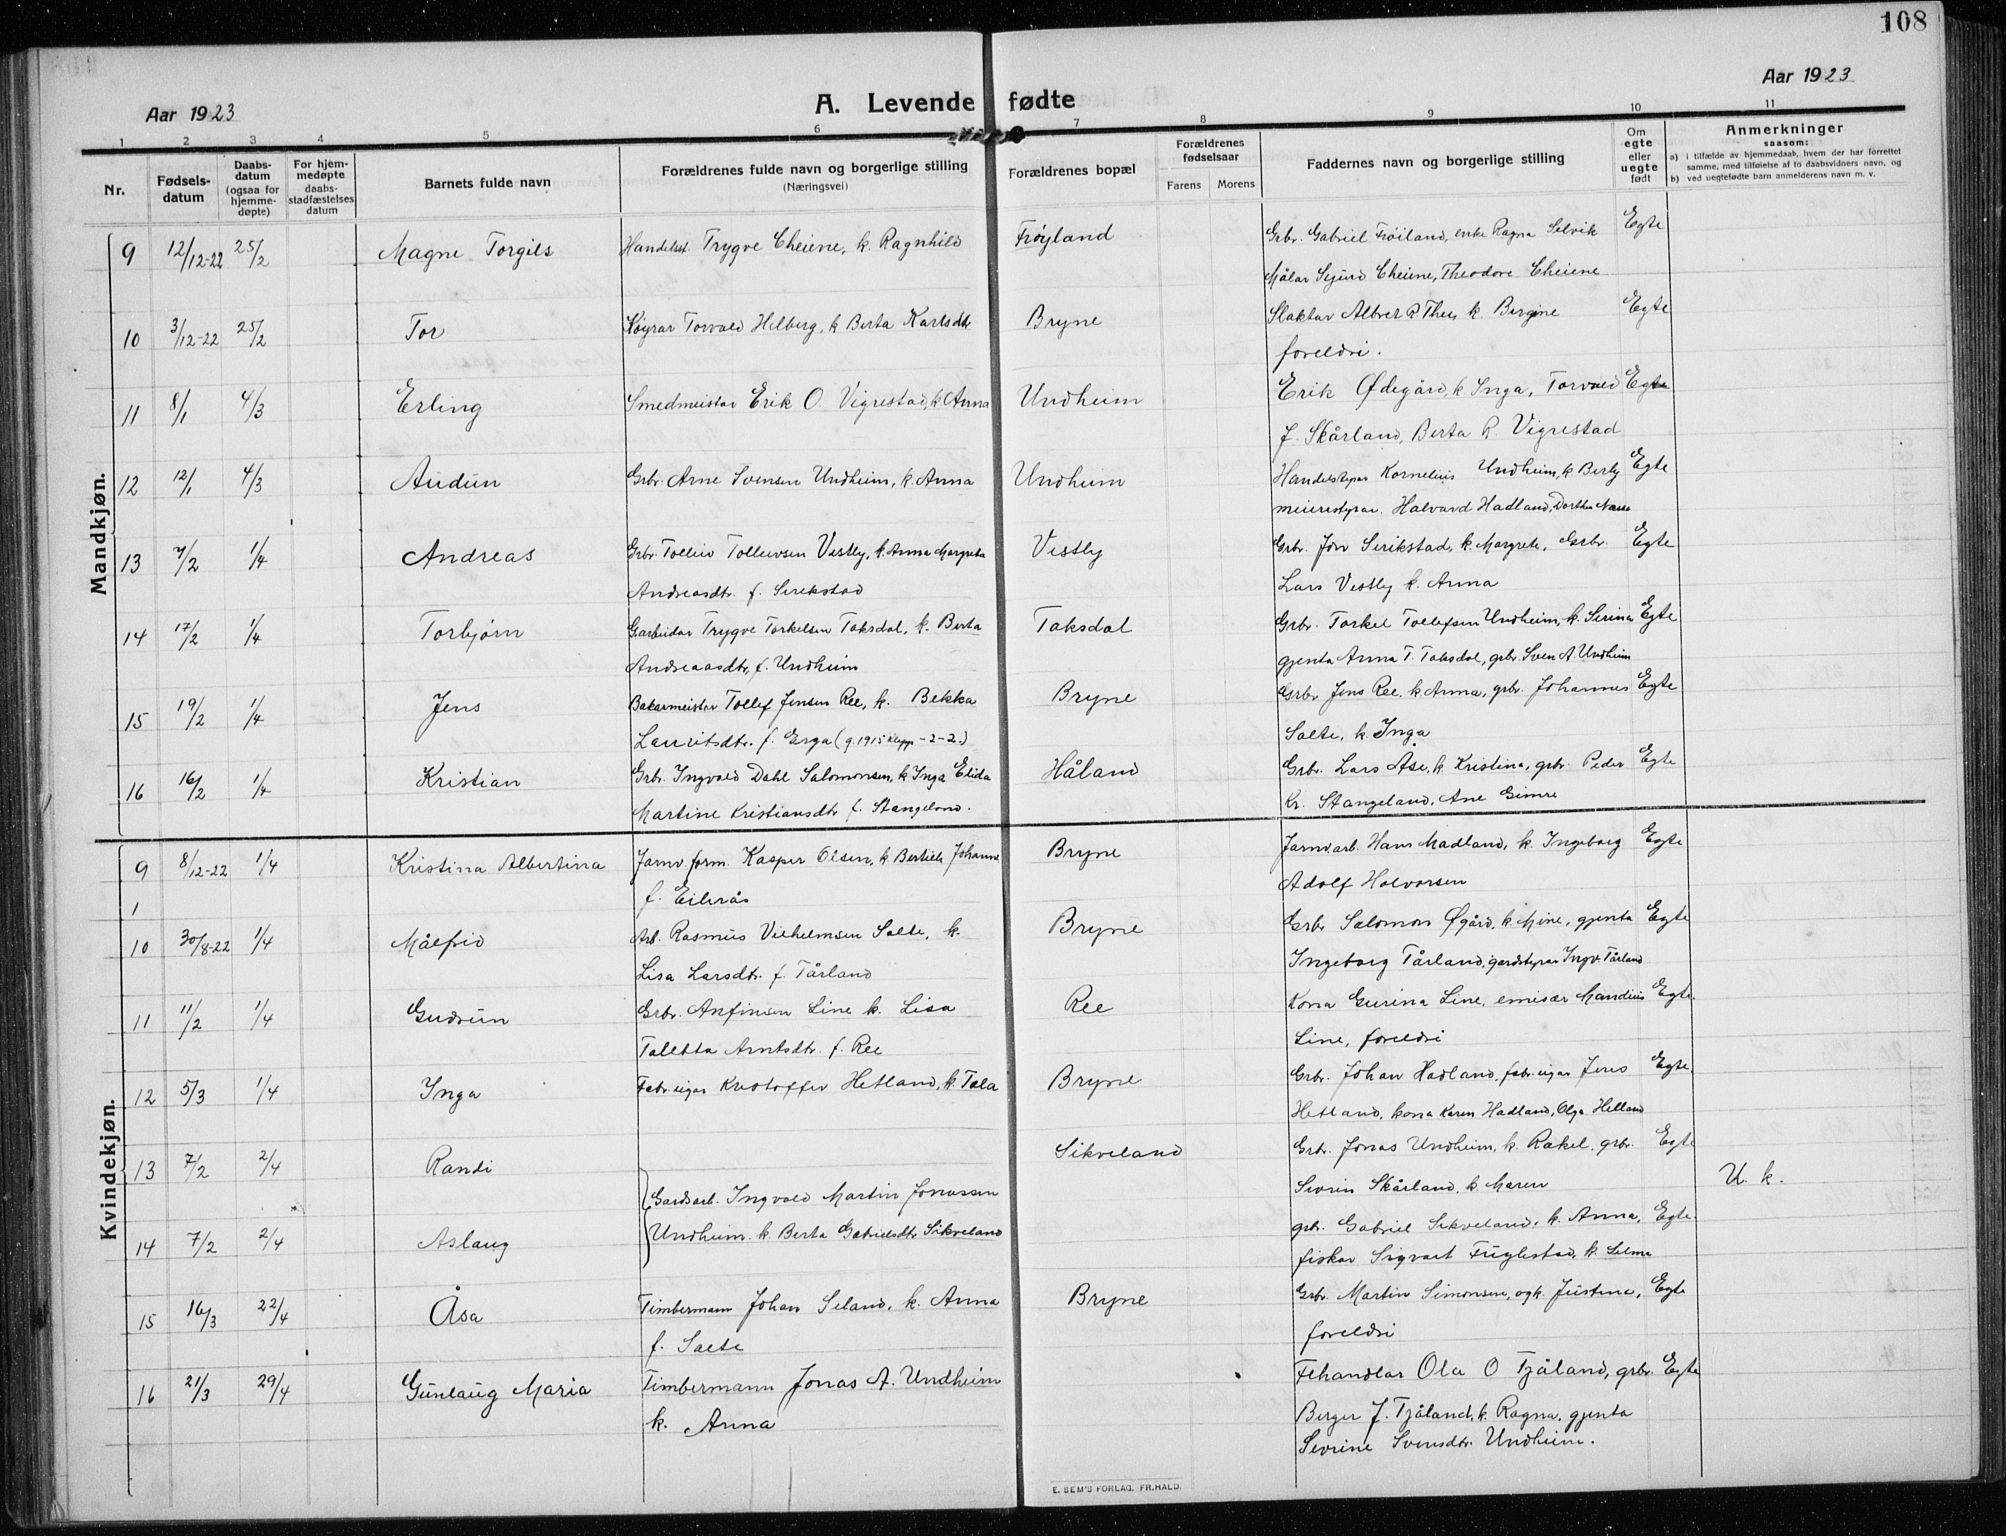 108
Aar 1923
Aar 1923
A. Levende fødte
1 2 3 4 5 6 7 8 9 10 11
Nr.
Fødsels-datum
Daabs-datum (ogsaa for hjemme-døpte)
For hjem-medøpte daabs-stadfæstelses datum
Barnets fulde navn
Forældrenes fulde navn og borgerlige stilling
(Næringsvei)
Forældrenes bopæl
Forældrenes fødselsaar
Farens Morens
Faddernes navn og borgerlige stilling
Om egte eller uegte født
Anmerkninger
saasom:
a) i tilfælde av hjemmedaab, hvem der har forrettet samme, med tilføielse af to daabsvidners navn, og
b) ved uegtefødte barn anmelderens navn m. v.
Mandkjøn.
9 12/12-22 25/2 Magne Torgils Handelsst. Trygve Cheiene, k. Ragnhild Frøyland Grbr. Gabriel Frøiland, enke Ragna Selvik Egte
Målar Sigurd Cheiene, Theodore Cheiene
10 3/12-22 25/2 Tor Køyrar Torvald Helberg, k. Berta Karlsdtr Bryne Slaktar Albret R. Thu, k. Bergine Egte
foreldri.
11 8/1 4/3 Erling Smedmeistar Erik O. Vigrestad, k. Anna Undheim Erik Ødegård, k. Inga, Torvald Egte
J. Skårland, Berta R. Vigrestad
12 12/1 4/3 Audun Grbr. Arne Svensen Undheim, k. Anna Undheim Handelstyrar Kornelius Undheim, k. Berly Egte
meieristyrar Halvard Hadland, Dorthea Næss
13 7/2 1/4 Andreas Grbr. Tolleiv Tolleivsen Vestly, k. Anna Margreta Vestly Grbr. Jon Serikstad, k. Margrete, Grbr. Egte
Andreasdtr. f. Serikstad Lars Vestly k. Anna
14 17/2 1/4 Torbjørn Garbeidar Trygve Torkelsen Taksdal, k. Berta Taksdal Grbr. Torkel Tollefsen Undheim, k. Serina Egte
Andreaasdtr, f. Undheim gjenta Anna T. Taksdal, grbr. Sven A. Undheim
15 19/2 1/4 Jens Bakarmeister Tollef Jensen Ree, k. Bekka Bryne Grbr Jens Ree, k Anna, grbr. Johannes Egte
Lauritsdtr. f. Erga (g. 1915 Klepp -2-2.) Salte, k. Inga
16 16/2 1/4 Kristian Grbr. Ingvald Dahl Salomonsen, k. Inga Elida Håland Grbr. Lars Åse, k Kristina, grbr. Peder Egte
Martine Kristiansdtr f. Stangeland. Kr. Stangeland, Ane Gimre
Kvindekjøn.
9 8/12-22 1/4 Kristina Albertina Jarnv.form. Kasper Olsen, k. Bertiele Johanne Bryne Jarnv.arb. Hans Madland, k. Ingeborg Egte
1 f. Eilerås Adolf Halvorsen
10 30/8-22 1/4 Målfrid Arb. Rasmus Vilhelmsen Salte, k. Bryne Grbr Salomon Øgård, k. Mine, gjenta Egte
Lisa Larsdtr. f. Tårland Ingeborg Tårland, gardstyrar Ingv. Tårland
11 11/2 1/4 Gudrun Grbr. Anfinsen Line k. Lisa Ree Kona Gurina Line, emisær Mandius Egte.
Taletta Arntsdtr. f. Ree Line, foreldri
12 5/3 1/4 Inga Fabr.eigar Kristoffer Hetland, k. Tala Bryne Grbr. Johan Hadland, fabr.eigar Jens Egte.
Hetland, kona Karen Hadland, Olga Helland
13 7/2 2/4 Randi Gardsarb. Ingvald Martin Jonassen Sikveland Grbr. Jonas Undheim, k. Rakel, grbr. Egte
Sivrin Skårland, k. Maren U. k.
14 7/2 2/4 Aslaug Undheim. k. Berta Gabrielsdtr. Sikveland grbr. Gabriel Sikveland, k. Anna, Egte.
fiskar Sigvart Fuglestad, k. Selma
15 16/3 22/4 Åsa Timbermann Johan Seland, k. Anna Bryne Grbr. Martin Simonsen, og k. Justina, Egte
f. Salte foreldri
16 21/3 29/4 Gunlaug Maria Timbermann Jonas A. Undheim Fehandlar Ola O Tjåland, grbr. Egte
k. Anna Berger J. Tjåland, k. Ragna, gjenta
Sevrine Svensdtr. Undheim.
E. SEM'S FORLAG, FR.HALD.